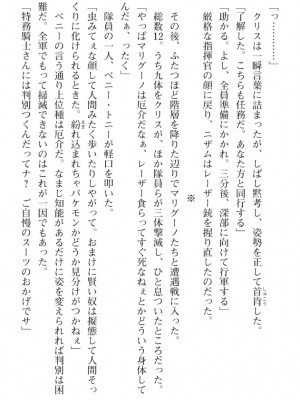 「っ………」
クリスは一瞬言葉に詰まったが、しばし黙考し、姿勢を正して首肯した。
「了解した。こちらも任務だ。あなた方と同行する」
「助かる。よし、全員準備にかかれ。三分後、深部に向けて行軍する」
厳格な指揮官の顔に戻り、ニザムはレーザー銃を握り直したのだった。
※
その後、ふたつほど階層を降りた辺りでマリグーノたちと遭遇戦に入った。
総数12。うち九体をクリスが、ほか隊員らが三体撃滅し、ひと息ついたところだった。
「やっぱマリグーノは厄介だなぁ。レーザー食らってすぐ死なねぇとかどういう身体して
んだぁ、ったく」
隊員の一人、ベニー・トニーが軽口を叩いた。
「虫みてぇな顔して人間みたく歩いたりしやがって。おまけに賢い奴は擬態して人間そっ
くりに化けられるときた。紛れ込まれちゃバケモンかどうか見分けがつかねぇ」
ベニーの言う通り上位種は厄介だ。なまじ知能があるだけに姿を変えられれば判別は困
難だ。全軍でもって掃滅できないのはこれが一因でもあった。
「特務騎士さんには判別つくんだってナ？　ご自慢のスーツのおかげでサ」